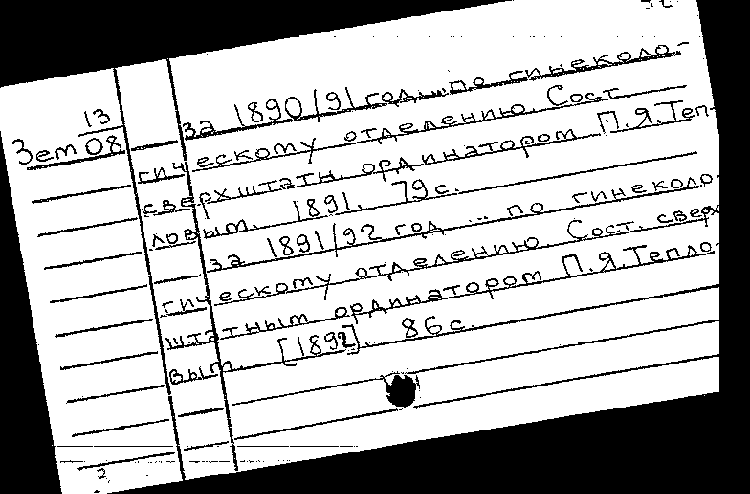 13
Зем 08
за 1890/91 год... по гинеколо-
гическому отделению. Сост.
сверхштатн. ординатором П.Я.Теп-
ловым. 1891. 79с.
за 1891/92 год ... по гинеколо-
гическому отделению. Сост. сверх
штатным ординатором П.Я.Тепло-
вым. [1892]. 86с.
2